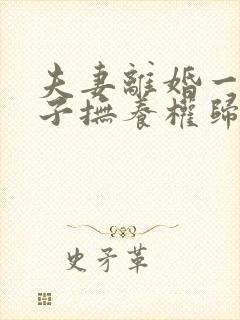 夫妻離婚一
子撫養權歸
史矛革